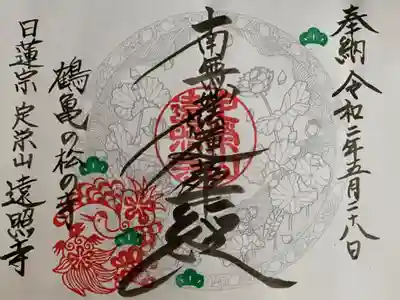 奉納 令和二年五月二十八日
南無妙法蓮華経
鶴亀の松の寺
日蓮宗 定栄山 遠照寺